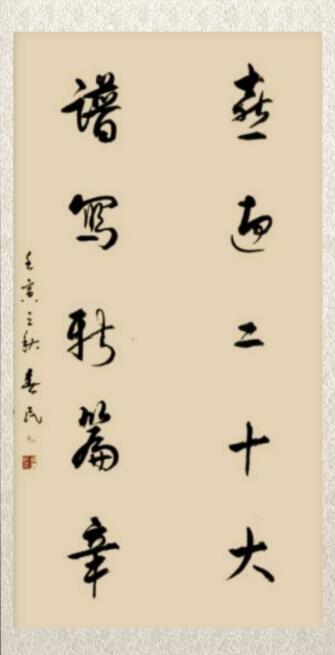 喜迎二十大
谱写新篇章
壬寅之秋春民书